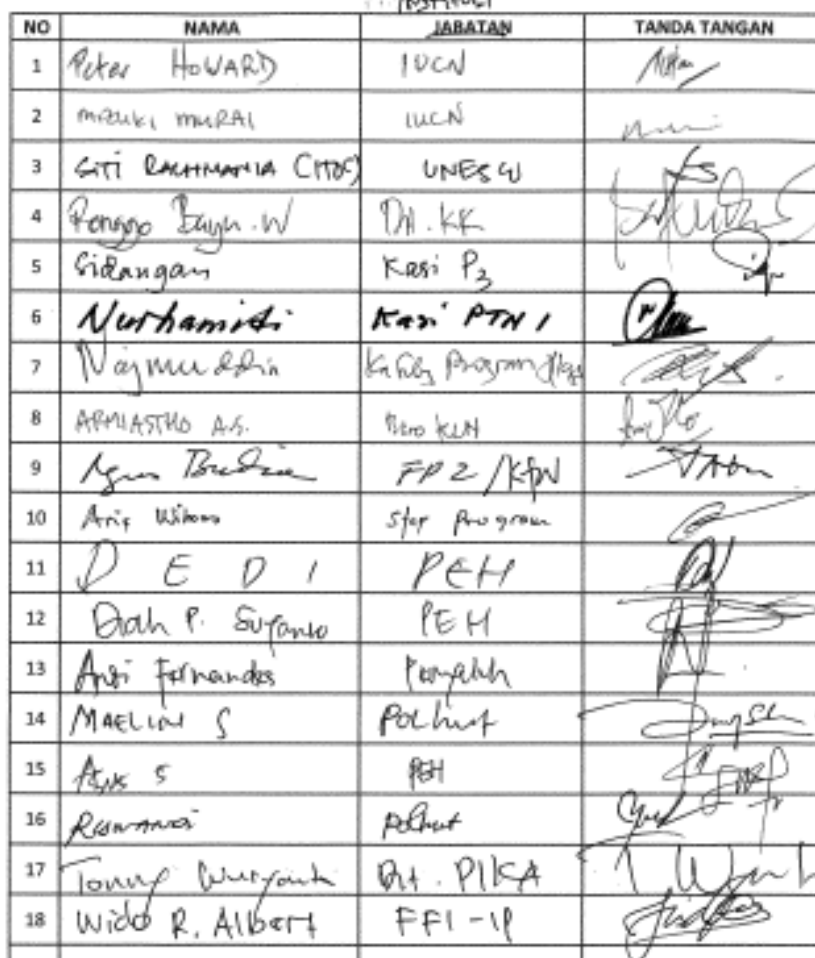 NO NAMA JABATAN TANDA TANGAN
1 Peter HOWARD IUCN
2 MIZUKI MURAI IUCN
3 SITI RACHMANIA UNESCO
4 Ronggo Bayu.W Dit.KK
5 Sidangan Kasi P3
6 Nurhamidi Kasi PTN 1
7 Najmuddin Program
8 ARMIASTHO A.S. Biro KLN
9 Agus Budi FP2/KfW
10 Arif Wibowo Staf Program
11 DEDI PEH
12 Diah P. Sugianto PEH
13 Andi Fernandes Penyuluh
14 MAELIN S POLhut
15 Agus S PEH
16 Rismandi Polhut
17 Tonny Wuryanto Dit. PIKA
18 Wido R. Albert FFI-IP